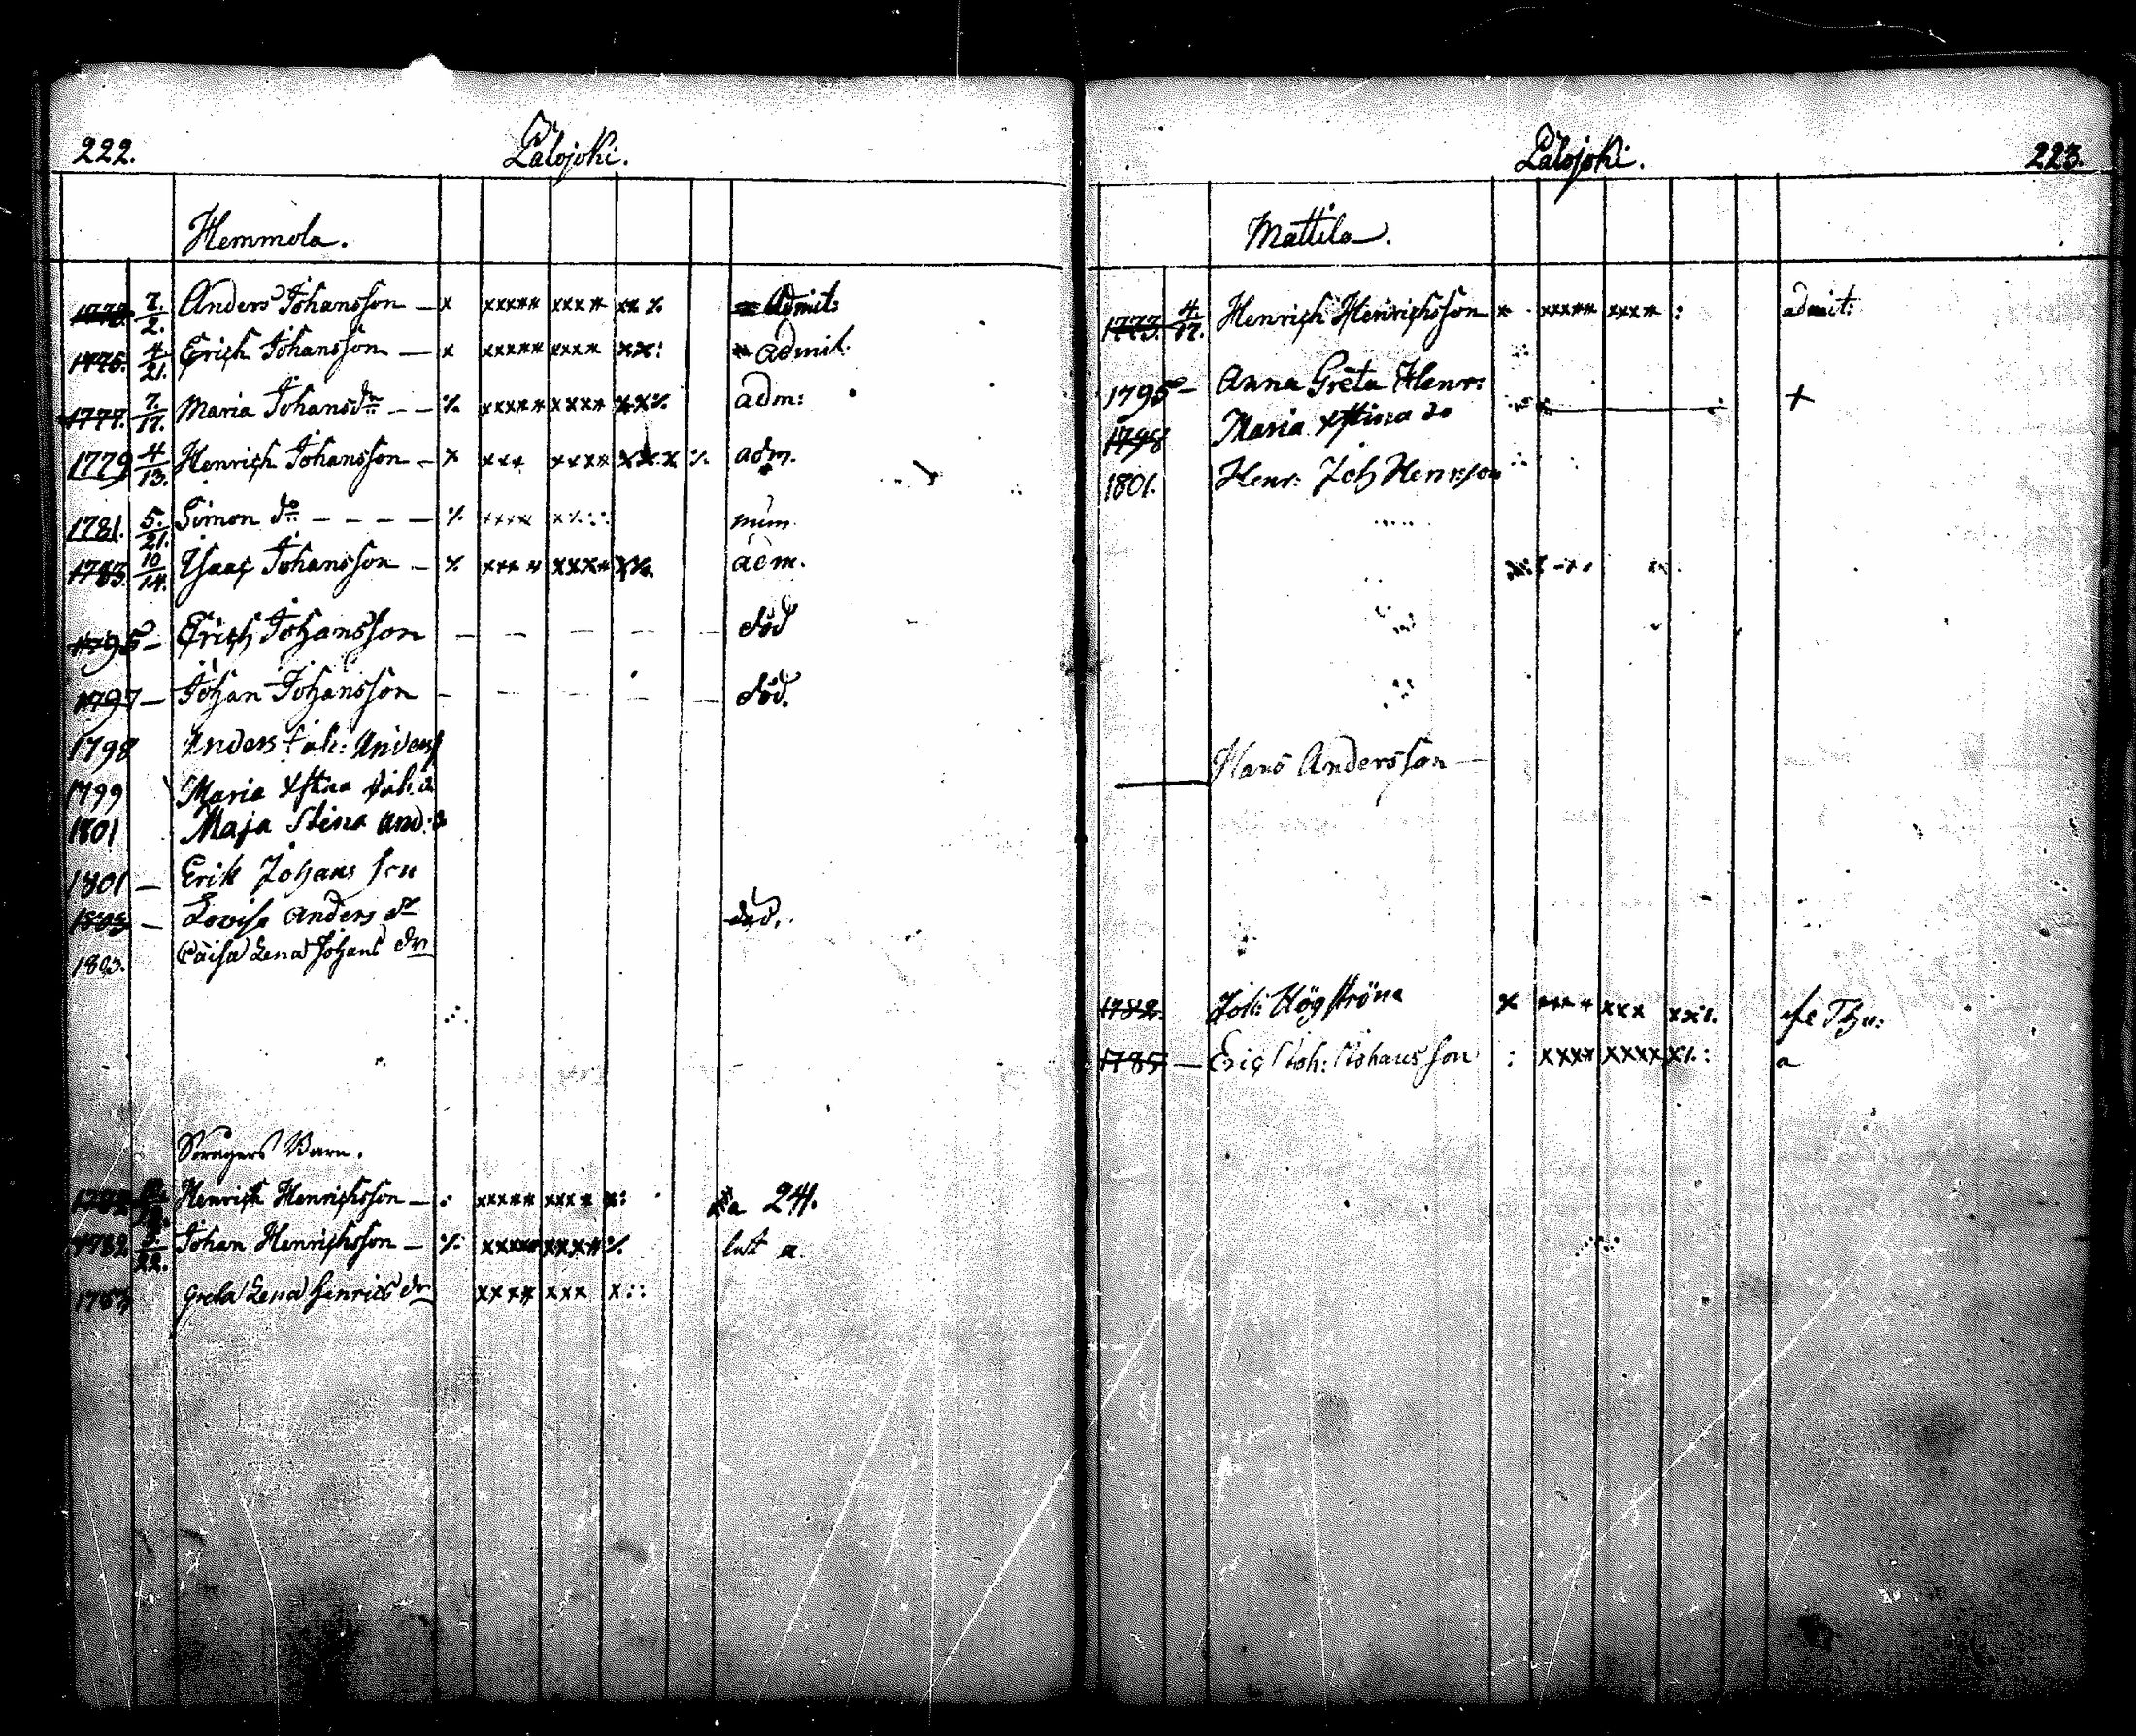 222.
Lålojoki.
Hemmola.
1773. 7/2. Anders Johansson — x xxxxx xxxx xx % Admit:
1775. 4/21. Erich Johansson — x xxxxx xxxx xx: Admit.
1777. 7/17. Maria Johansdr — — % xxxxx xxxx xx% adm:
1779 4/13. Henrich Johansson — x xxx xxxx xxx % adm.
1781. 5./21. Simon do — — — — % xxxx x%::
1783. 10/14. Isaac Johansson — % xxxx xxxx x%. adm.
1795 — Erich Johansson — — — — — död
1797 — Johan Johansson — — — — — död.
1798 Anders Joh: Anders
1799 Maria Xstina Joh. d
1801 Maja Stina And: d
1801 — Erik Johans son
1803 — Lovisa Anders dr död.
1803. Caisa Lena Johans dr
Barn.
Henrich Henrichsson — : xxxxx xxxx x: a 241.
1782 5./22. Johan Henrichsson — % xxxxx xxxx % a.
Greta Lena Henrics dr xxxx xxx x::
Lålojoki.
223.
Mattila.
1773. 4./17. Henrich Henrichsson x xxxxx xxxx : admit:
1795 — Anna Greta Henr: +
1798 Maria Xstina do
1801. Henr: Joh Henrsson
Hans Andersson —
1782. Joh: Högström x xxxx xxx xx%.
1785 — Eric Joh: Johansson : xxxx xxxx x%: a